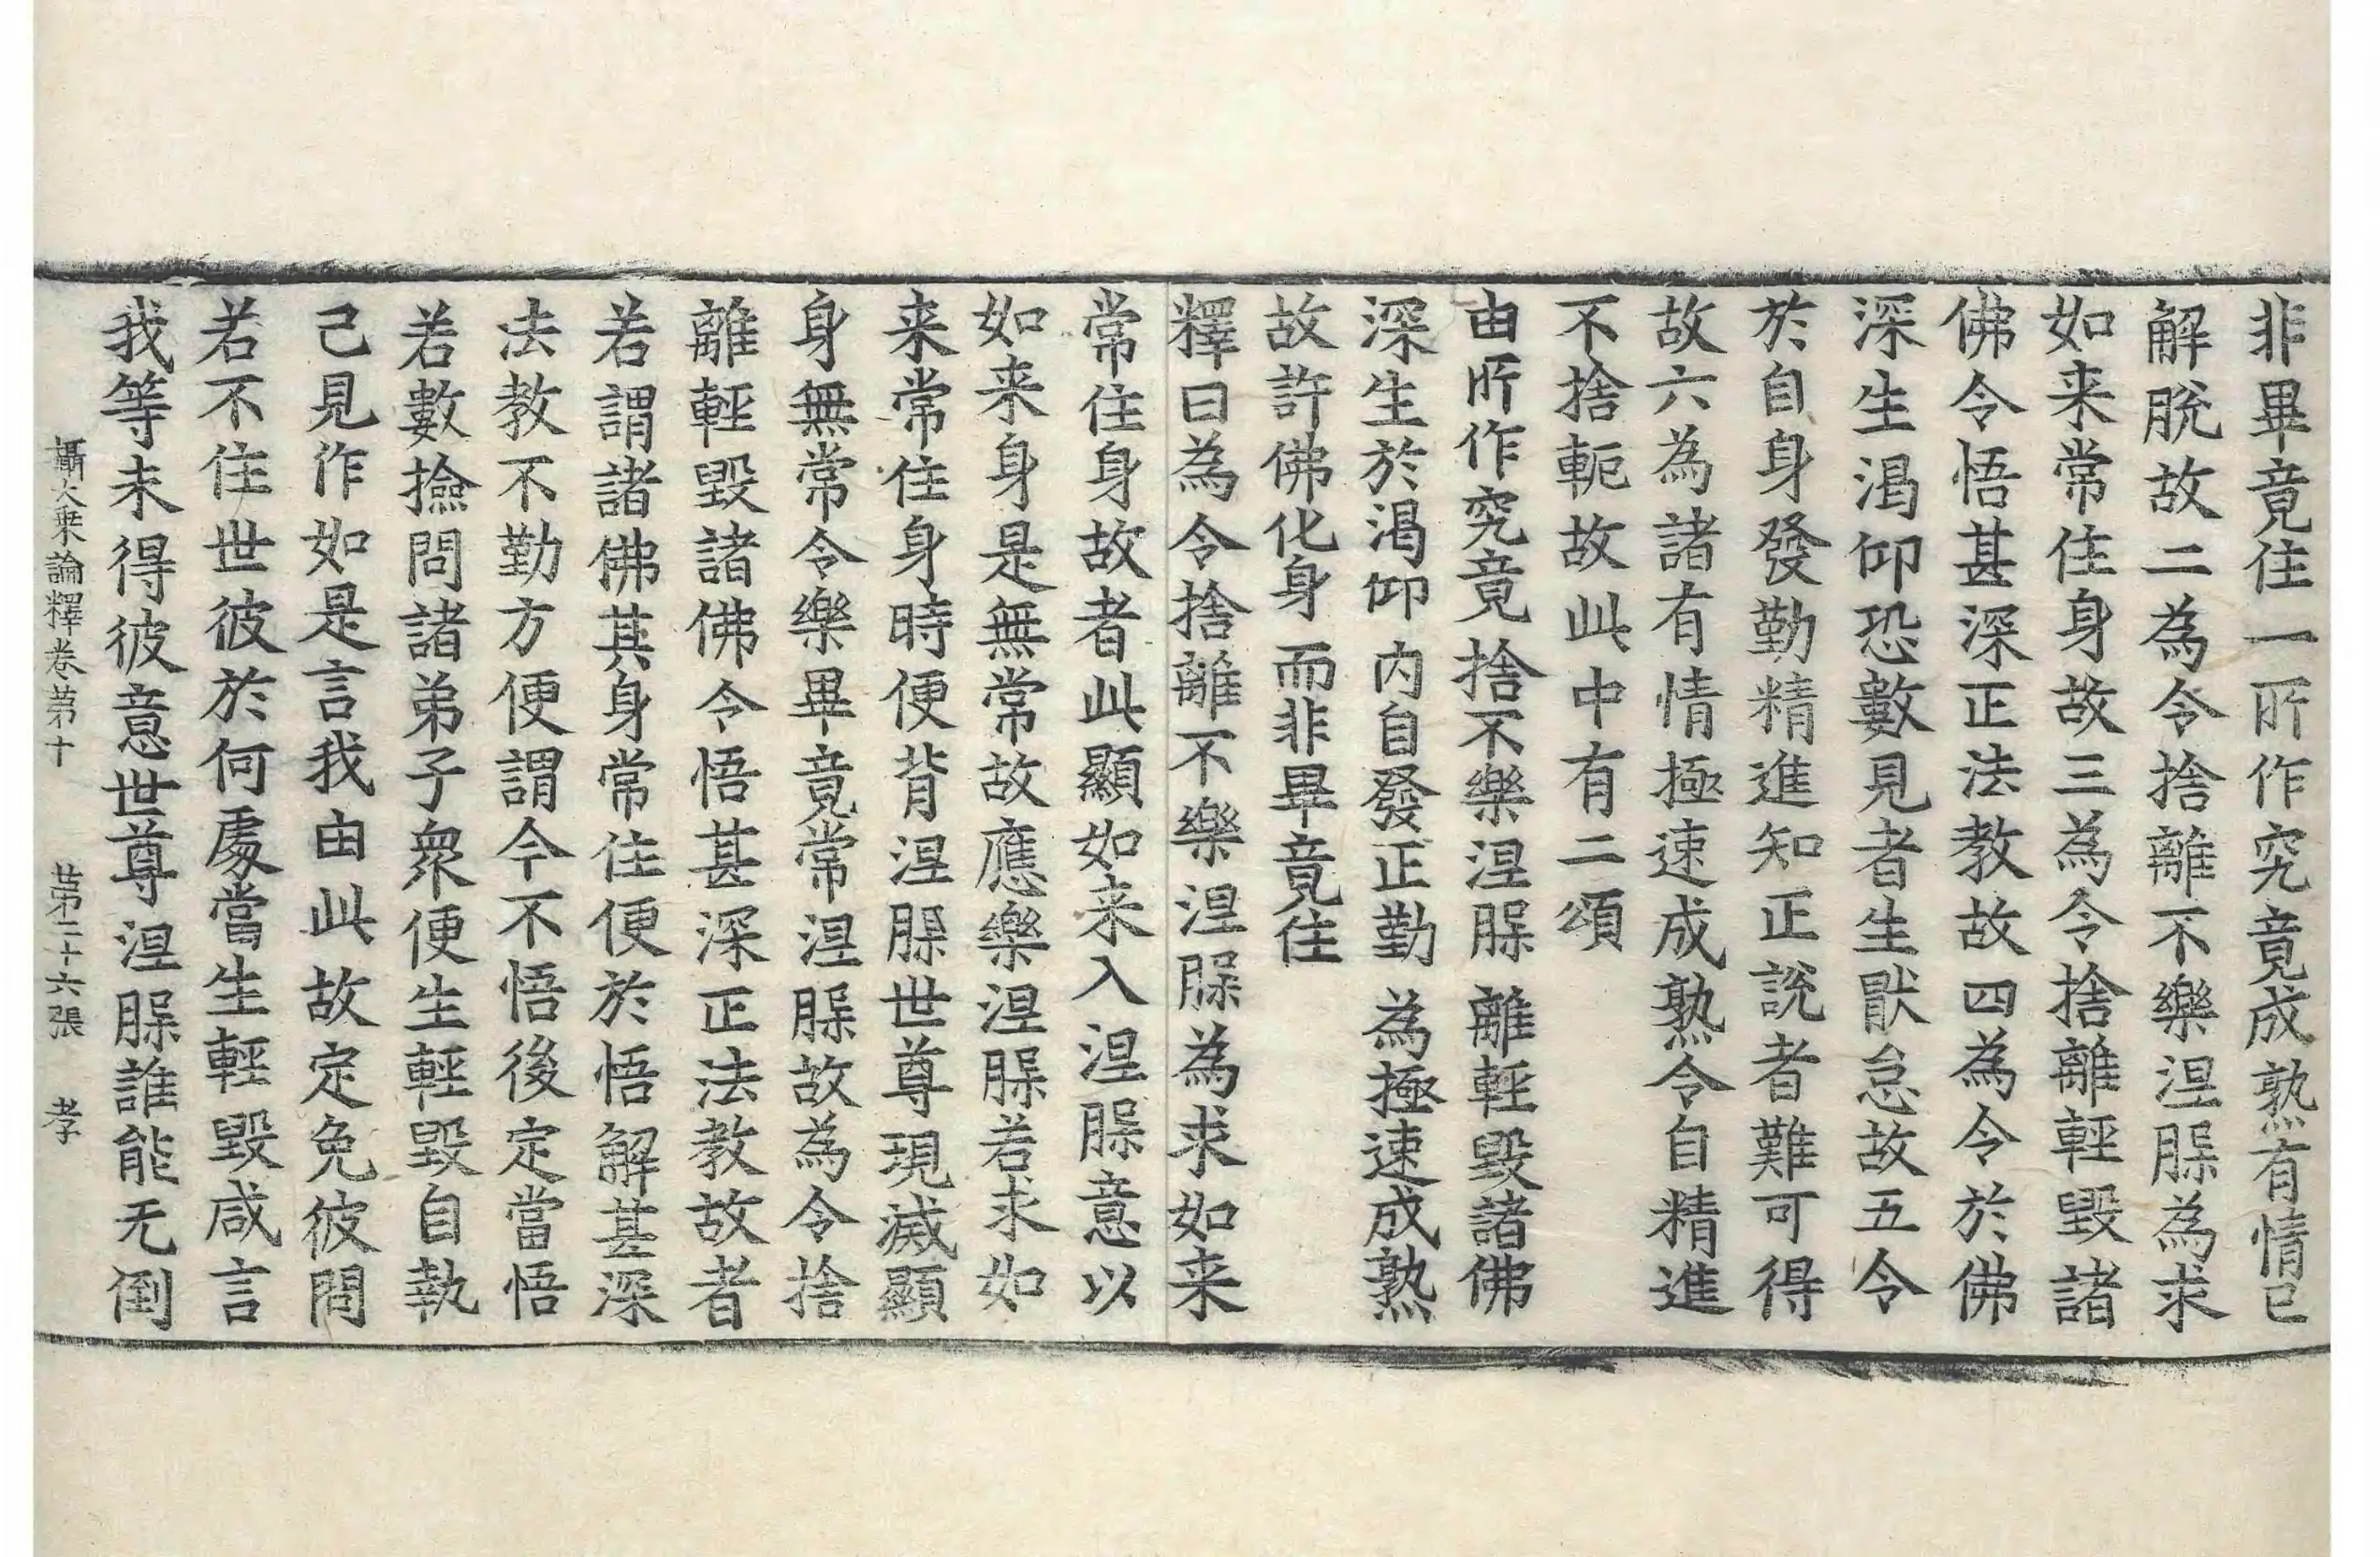 非畢竟住一所作究竟成熟有情已
解脫故二為令捨離不樂涅槃為求
如来常住身故三為令捨離輕毀諸
佛令悟甚深正法教故四為令於佛
深生渴仰恐數見者生猒怠故五令
於自身發勤精進知正說者難可得
故六為諸有情極速成熟令自精進
不捨軛故此中有二頌
由所作究竟 捨不樂涅槃 離輕毀諸佛
深生於渴仰 內自發正勤 為極速成熟
故許佛化身 而非畢竟住
釋曰為令捨離不樂涅槃為求如来
常住身故者此顯如来入涅槃意以
如来身是無常故應樂涅槃若求如
来常住身時便背涅槃世尊現滅顯
身無常令樂畢竟常涅槃故為令捨
離輕毀諸佛令悟甚深正法教故者
若謂諸佛其身常住便於悟解甚深
法教不勤方便謂今不悟後定當悟
若數撿問諸弟子眾便生輕毀自執
己見作如是言我由此故定免彼問
若不住世彼於何處當生輕毀咸言
我等未得彼意世尊涅槃誰能无倒
攝大乘論釋卷第十 第二十六張 孝